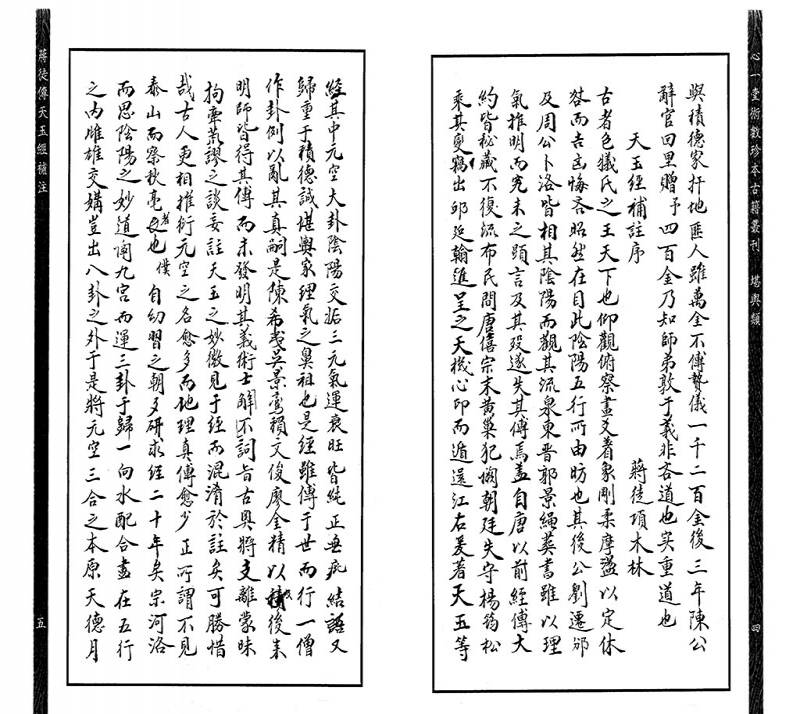 心一堂術數珍本古籍叢刊　堪輿類
四
與積德家扦地匪人雖萬全不傳贄儀一千二百金後三年陳公
辭官回里贈予四百金乃知師弟敦于義非吝道也实重道也
天玉經補註序　蔣徒項木林
古者包犧氏之王天下也仰觀俯察畫爻着象剛柔摩盪以定休
咎而吉凶悔吝昭然在目此陰陽五行所由昉也其後公劉遷邠
及周公卜洛皆相其陰陽而觀其流泉東晋郭景純葬書雖以理
氣推明而究未之顕言及其殁遂失其傳焉盖自唐以前經傳大
約皆秘藏不復流布民間唐僖宗末黄巢犯闕朝廷失守楊筠松
乘其變竊出邱延翰進呈之天機心印而遁還江右爰著天玉等
經其中元空大卦陰陽交姤三元氣運衰旺皆純正無疵結語又
歸重于積德誠堪輿家理氣之鼻祖也是經雖傳于世而行一僧
作卦例以亂其真嗣是陳希夷吴景鸞賴文俊廖金精以後来
明師皆得其傳而未發明其義術士觧不詞旨古奥將支離蒙昧
拘牽荒謬之談妄註天玉之妙微見于經而混淆於註矣可勝惜
哉古人更相推衍元空之名愈多而地理真傳愈少正所謂不見
泰山而察秋毫者也僕自幼習之朝夕研求經二十年矣宗河洛
而思陰陽之妙道闡九宫而運三卦于歸一向水配合盡在五行
之内雌雄交媾豈出八卦之外于是將元空三合之本原天德月
蔣徒傳天玉經補注
五